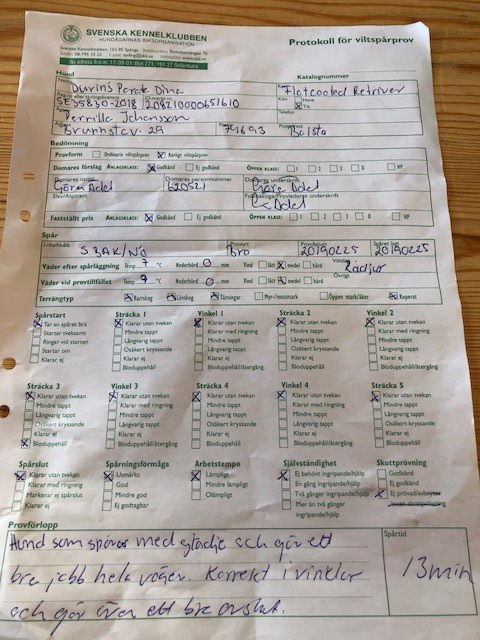 SVENSKA KENNELKLUBBEN
HUNDÄGARNAS RIKSORGANISATION
Protokoll för viltspårprov
Ny adress fr.o.m. 17-09-01: Box 771, 191 27 Sollentuna
Hund
Katalognummer
Durin's Parade Dina
Flatcoated Retriever
SE35830-2018 208210000651610
Kön
Hane
Tik
Pernille Johansson
Telefon
Brunnstav. 29
74693
Bålsta
Bedömning
Provform Ordinarie viltspårprov Rörligt viltspårprov
Domares förslag ANLAGSKLASS: Godkänd Ej godkänd ÖPPEN KLASS: 1 2 3 0 HP
Domares namn Domares personnummer Domares underskrift
Göran Adel 620521 Göran Adel
Elev/Aspirant
Adel
Fastställt pris ANLAGSKLASS: Godkänd Ej godkänd ÖPPEN KLASS: 1 2 3 0 HP
Spår
Lokalklubb Provort Provdatum Spåret lagt
SBAK/Nö Bro 20190225 20190225
Väder efter spårläggning Temp 7 °C Nederbörd 0 mm Vind lätt medel hård
Viltslag
Rådjur
Väder vid provtillfället Temp 9 °C Nederbörd 0 mm Vind lätt medel hård
Övrigt
Terrängtyp Barrskog Lövskog Tätningar Myr-/mossmark Öppen mark/åker Kuperat
Spårstart Sträcka 1 Vinkel 1 Sträcka 2 Vinkel 2
Tar an spåret bra Klarar utan tvekan Klarar utan tvekan Klarar utan tvekan Klarar utan tvekan
Startar tveksamt Mindre tappt Klarar med ringning Mindre tappt Klarar med ringning
Ringar vid starten Långvarig tappt Mindre tappt Långvarig tappt Mindre tappt
Startar om Osäkert kryssande Långvarig tappt Osäkert kryssande Långvarig tappt
Klarar ej Klarar ej Klarar ej Klarar ej Klarar ej
Bloduppehåll Bloduppehåll/återgång Bloduppehåll Bloduppehåll/återgång
Sträcka 3 Vinkel 3 Sträcka 4 Vinkel 4 Sträcka 5
Klarar utan tvekan Klarar utan tvekan Klarar utan tvekan Klarar utan tvekan Klarar utan tvekan
Mindre tappt Klarar med ringning Mindre tappt Klarar med ringning Mindre tappt
Långvarig tappt Mindre tappt Långvarig tappt Mindre tappt Långvarig tappt
Osäkert kryssande Långvarig tappt Osäkert kryssande Långvarig tappt Osäkert kryssande
Klarar ej Klarar ej Klarar ej Klarar ej Klarar ej
Bloduppehåll Bloduppehåll/återgång Bloduppehåll Bloduppehåll/återgång Bloduppehåll
Spårslut Spårningsförmåga Arbetstempo Självständighet Skottprövning
Klarar utan tvekan Utmärkt Lämpligt Ej behövt ingripande/hjälp Godkänd
Klarar med ringning God Mindre lämpligt En gång ingripande/hjälp Ej godkänd
Markerar ej spårslut Mindre god Olämpligt Två gånger ingripande/hjälp Ej prövad/
Klarar ej Ej godtagbar Mer än två gånger
ingripande/hjälp
Provförlopp
Spårtid
Hund som spårar med glädje och gör ett
bra jobb hela vägen. Korrekt i vinklar
och gör även ett bra avslut.
13 min